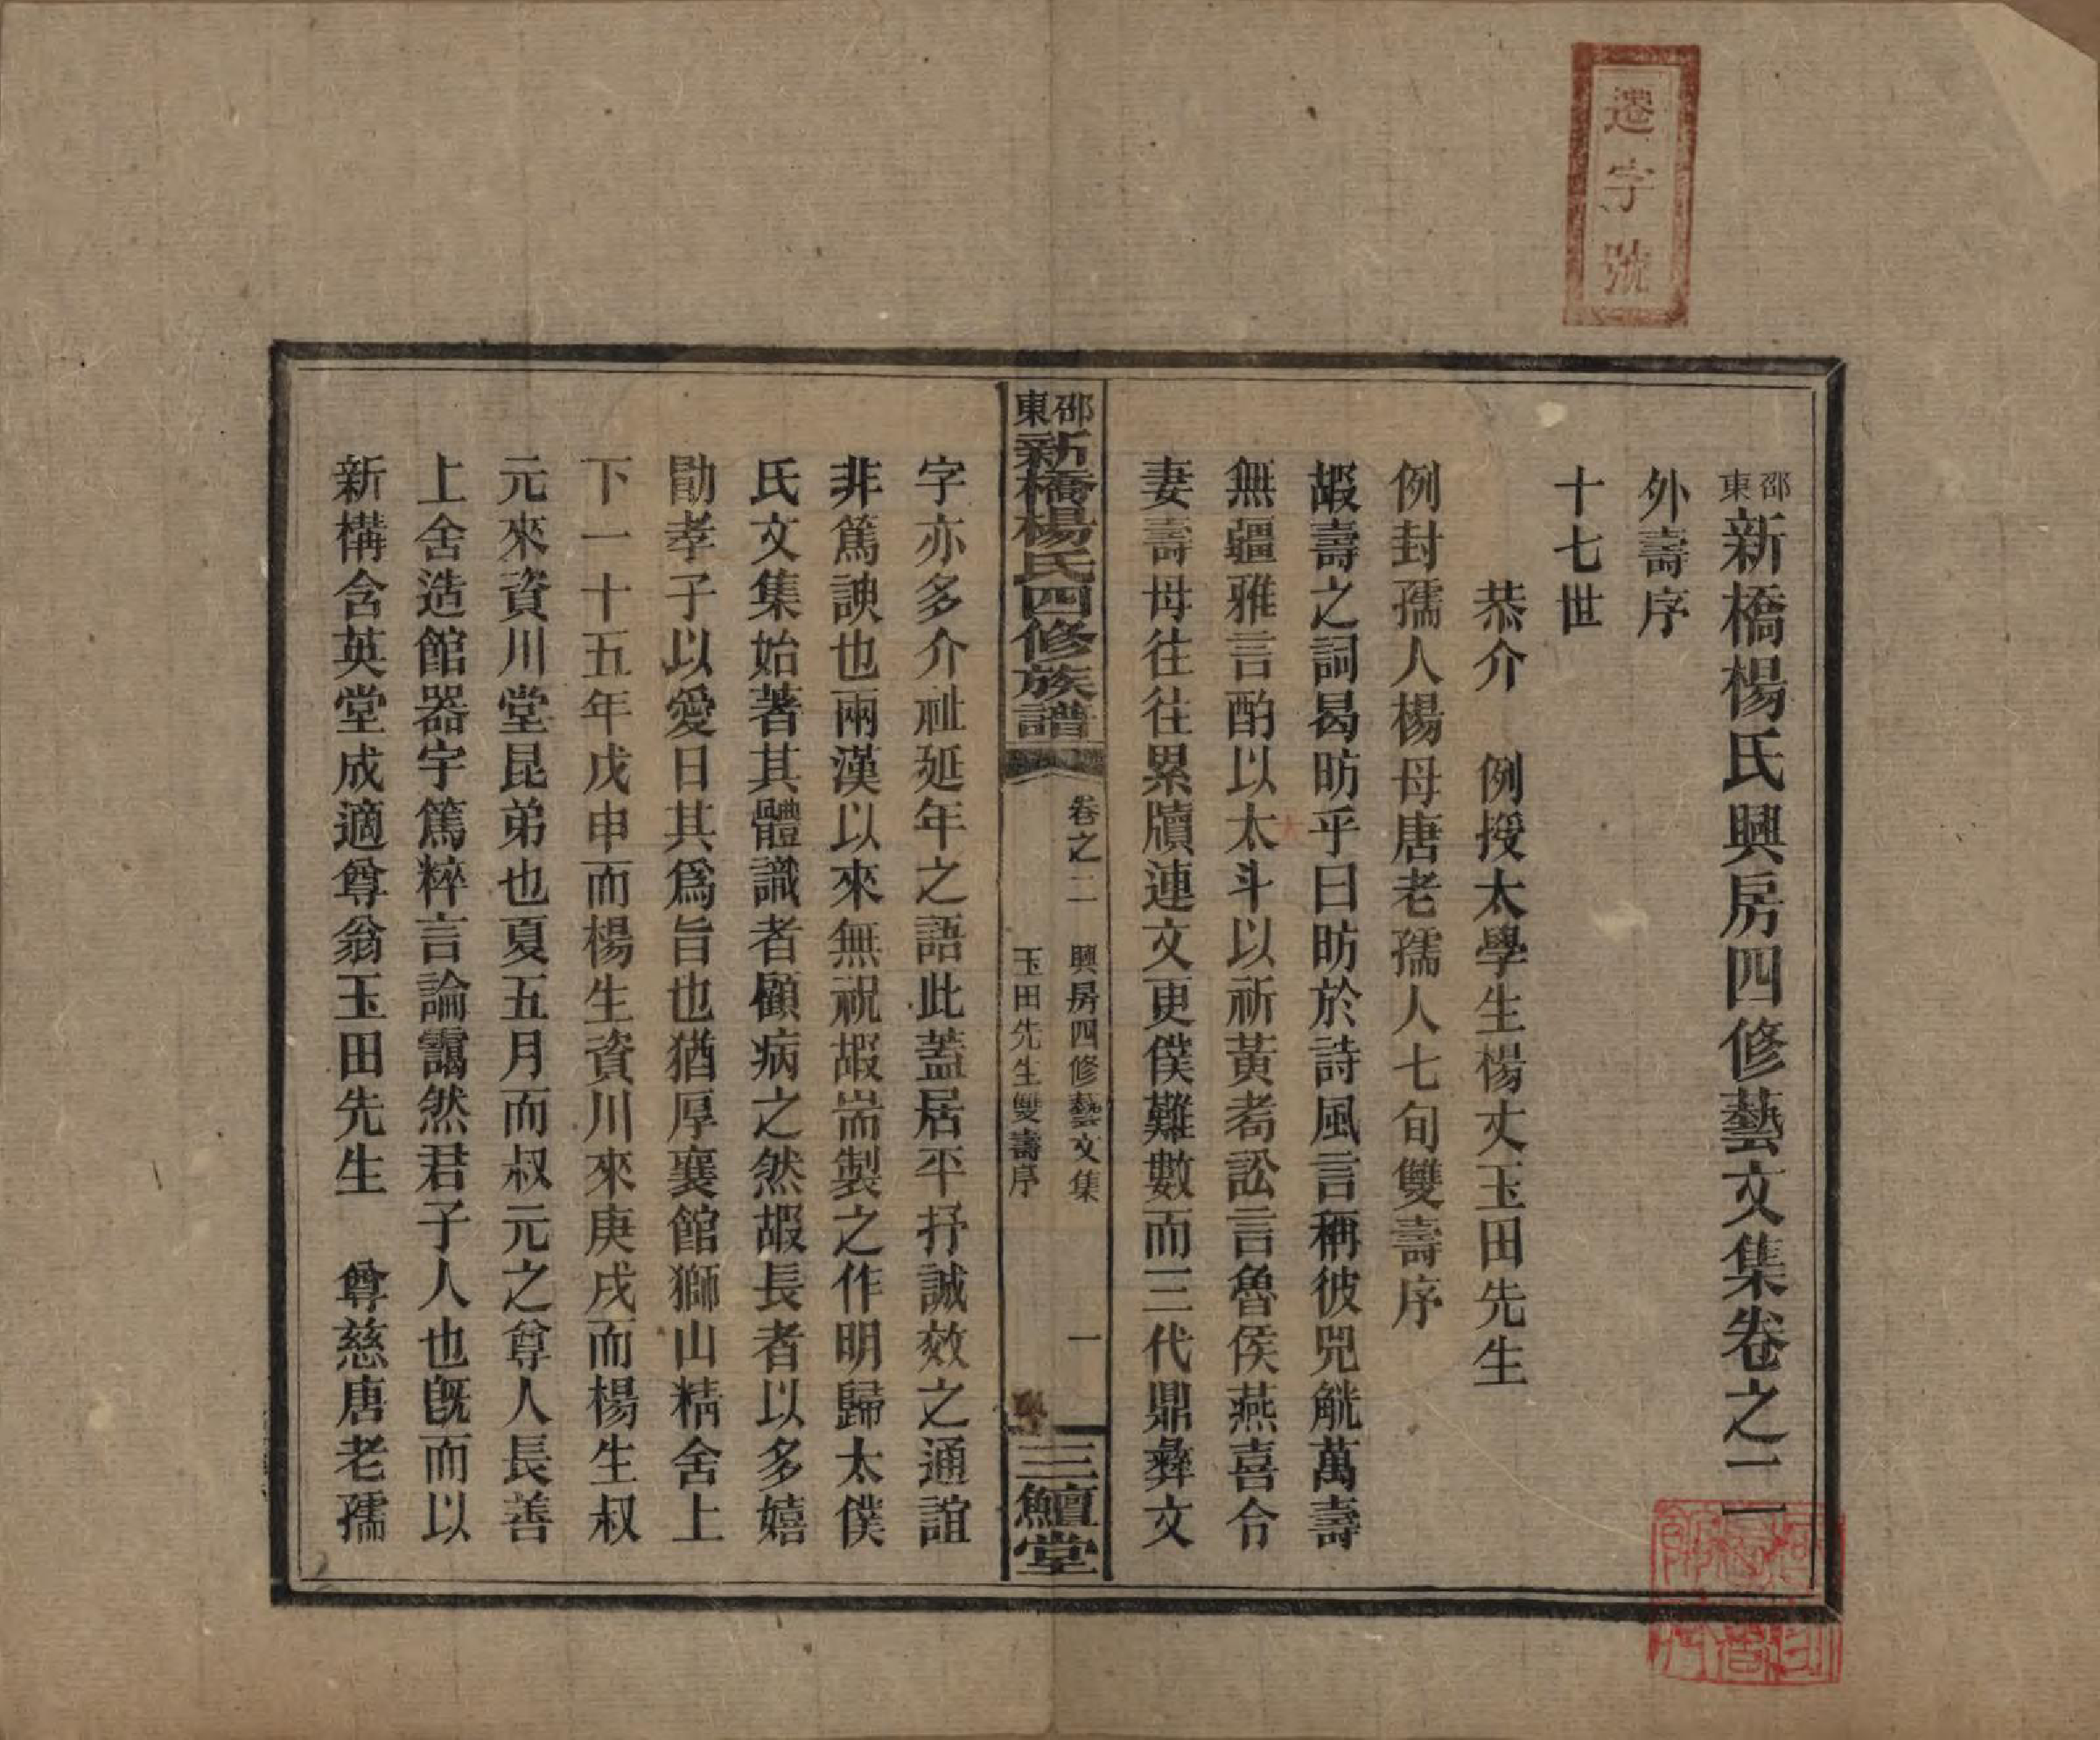 遷字號
邵東新橋楊氏興房四修藝文集卷之二
外壽序
十七世
恭介　例授太學生楊丈玉田先生
例封孺人楊母唐老孺人七旬雙壽序
嘏壽之詞曷昉乎曰昉於詩風言稱彼兕觥萬壽
無疆雅言酌以大斗以祈黃耇訟言魯侯燕喜令
妻壽母往往累牘連文更僕難數而三代鼎彝文
邵東新橋楊氏四修族譜
卷之二　興房四修藝文集　一
玉田先生雙壽序
三鱣堂
字亦多介祉延年之語此蓋居平抒誠效之通誼
非篤諛也兩漢以來無祝嘏耑製之作明歸太僕
氏文集始著其體識者顧病之然嘏長者以多嬉
勖孝子以愛日其為旨也猶厚襄館獅山精舍上
下一十五年戊申而楊生資川來庚戌而楊生叔
元來資川堂昆弟也夏五月而叔元之尊人長善
上舍造館器宇篤粹言論靄然君子人也旣而以
新構含英堂成適尊翁玉田先生　尊慈唐老孺